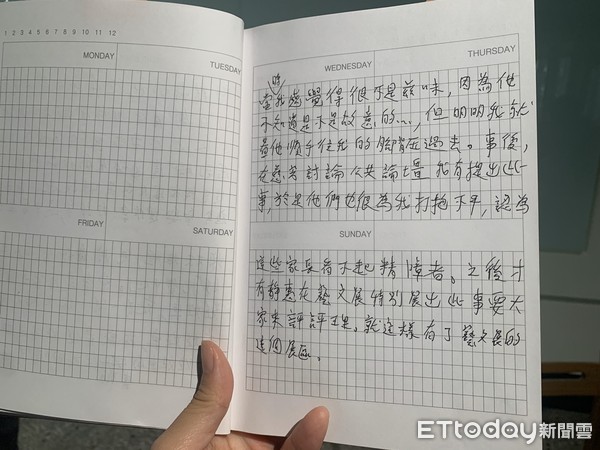 1 2 3 4 5 6 7 8 9 10 11 12
MONDAY
TUESDAY
WEDNESDAY
THURSDAY
時
當我感覺得很不是滋味，因為他
不知道是不是故意的...，但明明我就
看他順手往我的胳臂 過去。事後，
在慈芳討論公共論壇 我有提出此一
事，於是他們也很為我打抱不平，認為
FRIDAY
SATURDAY
SUNDAY
這些家長看不起精障者。之後才
有靜惠在藝文展特別展出此事要大
家來評評理。就這樣有了藝文展的
這個展區。
ETtoday新聞雲